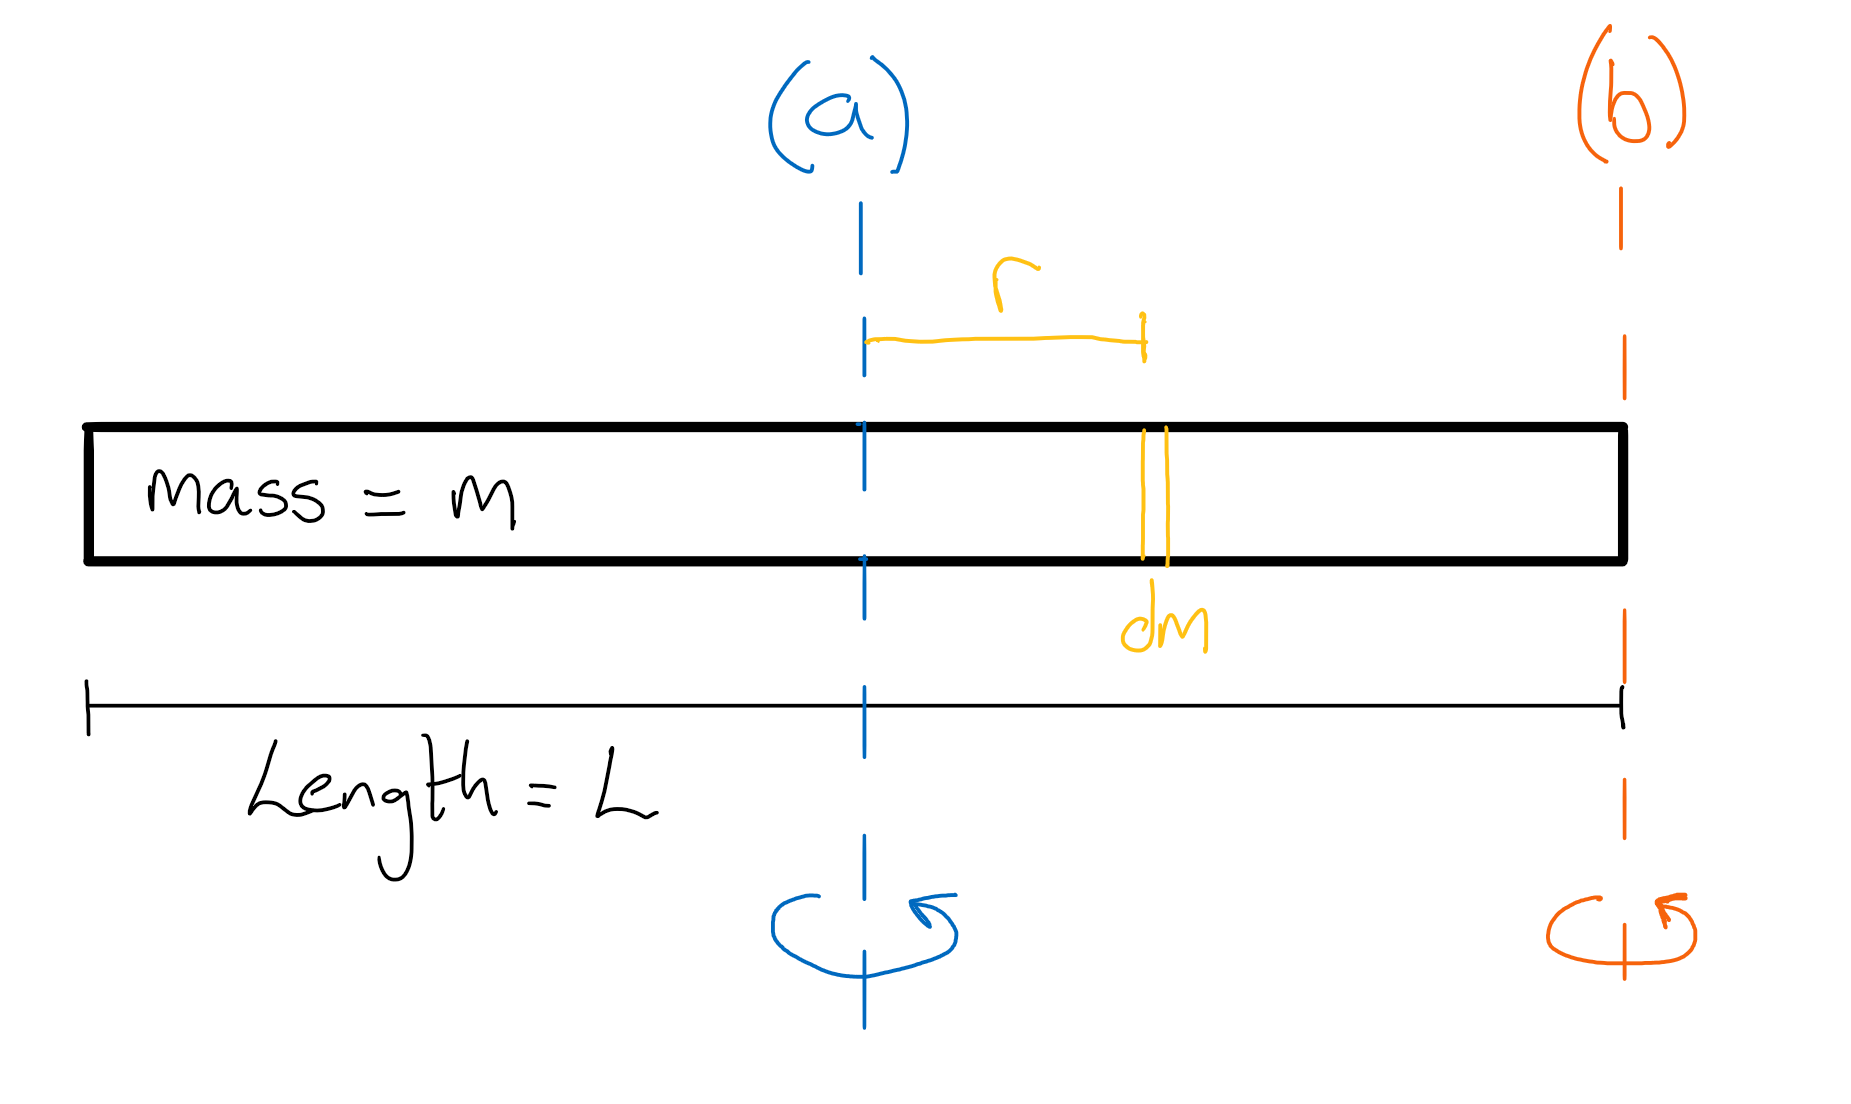 (a)
(b)
r
mass = m
dm
Length = L